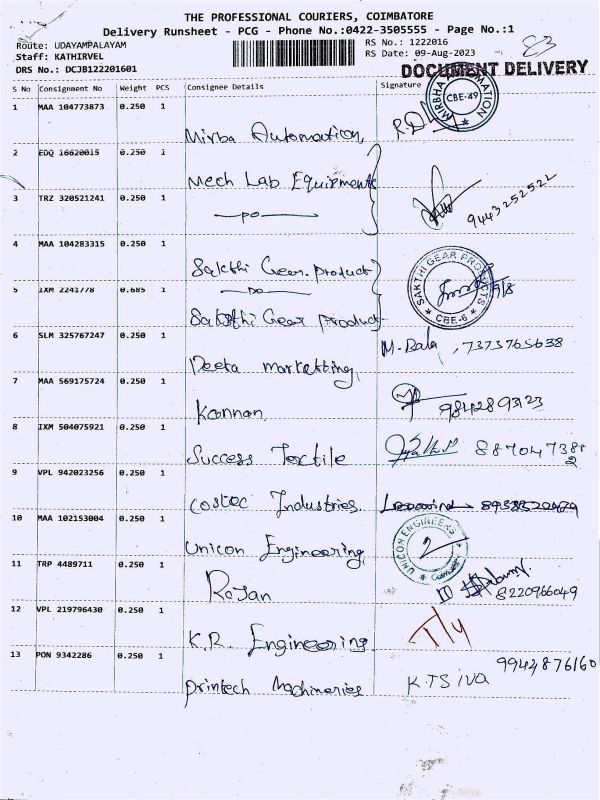 THE PROFESSIONAL COURIERS, COIMBATORE
Delivery Runsheet - PCG - Phone No.:0422-3505555 - Page No.:1
Route: UDAYAMPALAYAM RS No.: 1222016 83
Staff: KATHIRVEL RS Date: 09-Aug-2023
DRS No.: DCJB122201601 DOCUMENT DELIVERY
S No Consignment No Weight PCS Consignee Details Signature
1 MAA 104773873 0.250 1 Mirba Automation, MIRBHA AUTOMATION CBE-49
2 EDQ 16620015 0.250 1 Mech Lab Equipments
3 TRZ 320521241 0.250 1 9443252522
4 MAA 104283315 0.250 1 Sakthi Gear Product SAKTHI GEAR PRODUCTS CBE-6
5 IXM 2241778 0.685 1 Sakthi Gear Product
6 SLM 325767247 0.250 1 Deeta marketting, M. Bala, 7373765638
7 MAA 569175724 0.250 1 Kannan,
8 IXM 504075921 0.250 1 Success Textile
9 VPL 942023256 0.250 1 Costec Industries
10 MAA 102153004 0.250 1 Unicon Engineering, UNICON ENGINEERS
11 TRP 4489711 0.250 1 Rajan 8220966049
12 VPL 219796430 0.250 1 K.R. Engineering
13 PON 9342286 0.250 1 Printech Machineries K.T Siva 9944876160